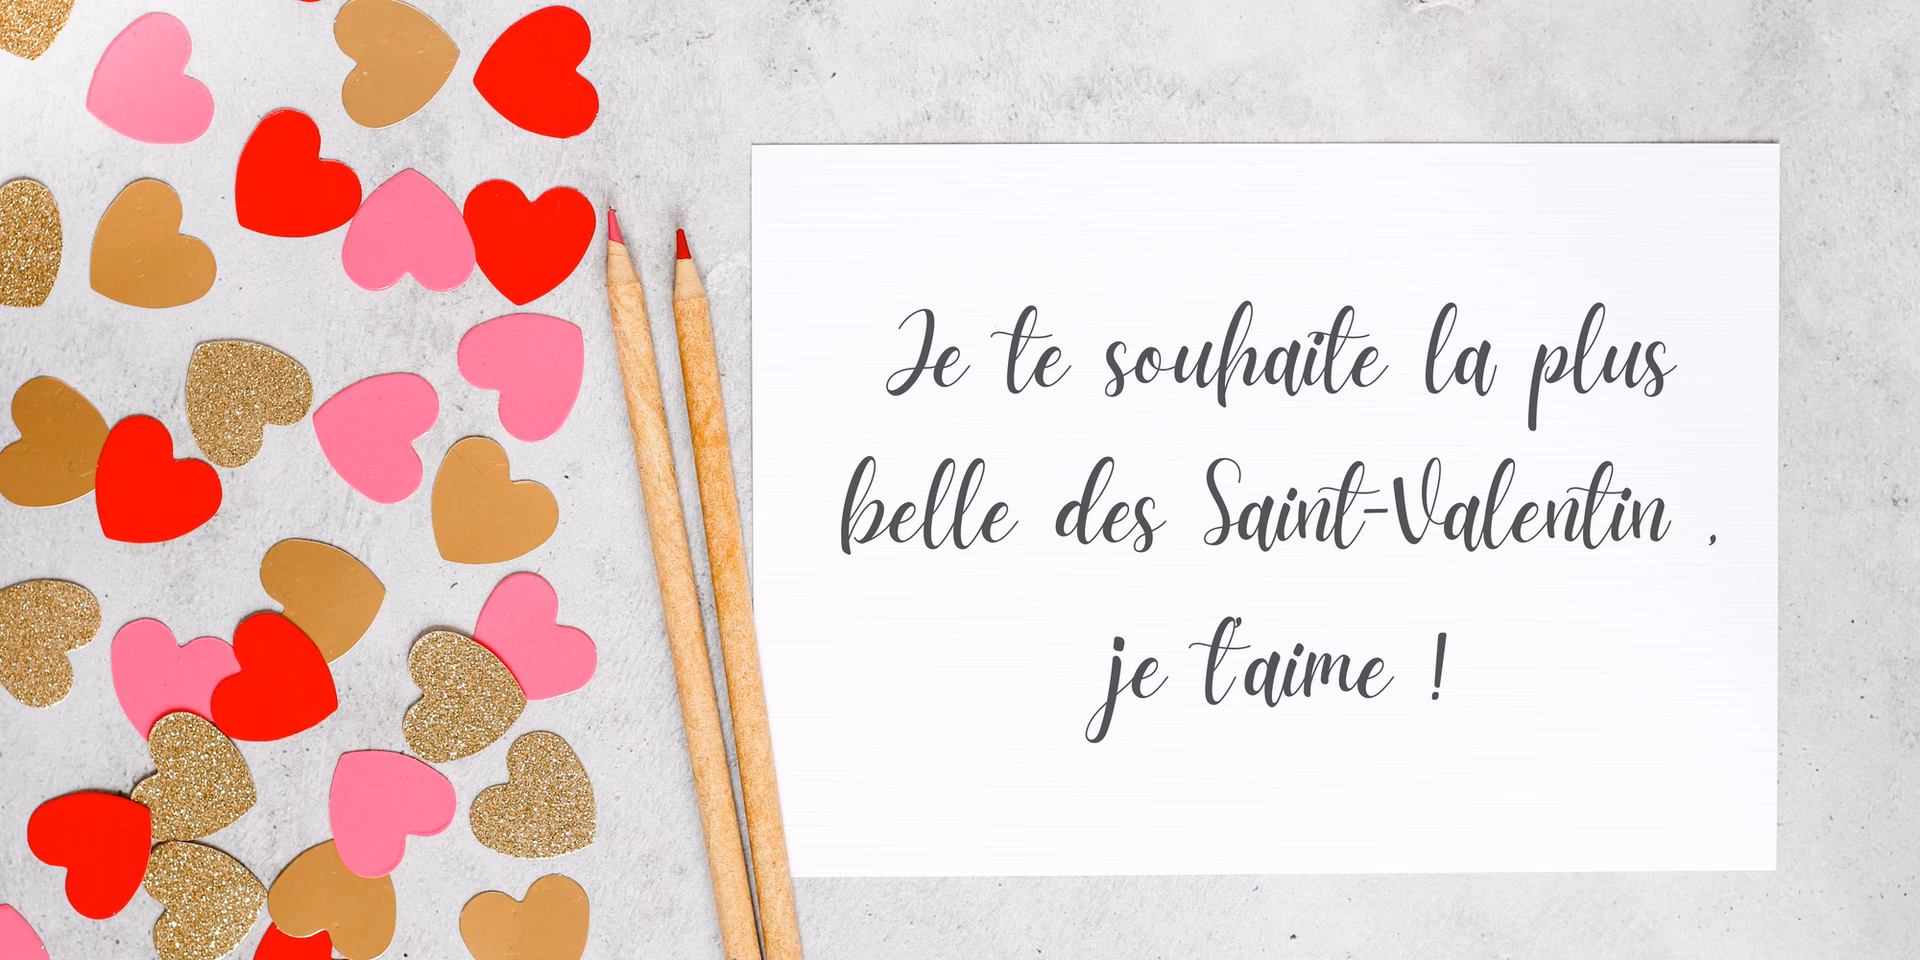 Je te souhaite la plus
belle des Saint-Valentin ,
je t'aime !